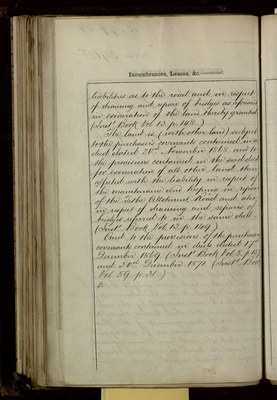 Incumbrances, Leases, &c.
liabilities as to the road and in respect
of draining and repair of bridges as aforesaid
in exoneration of the land thereby granted
(Inst. Book Vol. 13. p. 148.)
The land is (with other land) subject
to the purchaser's covenants contained in
deed dated November 1868 and to
the provisions contained in the said deed
for exoneration of all other land then
affected with the liability in respect of
the maintenance and keeping in repair
of the Allotment Road and also
in respect of draining and repair of
bridges referred to in the same deed.
(Inst. Book Vol. 13. p. 149)
And to the provisions of the purchasers
covenants contained in deeds dated 17th
December 1869 (Inst. Book Vol. 3. p.
and 30th December 1871 (Inst. Book
Vol. 39. p. 31.)
2.